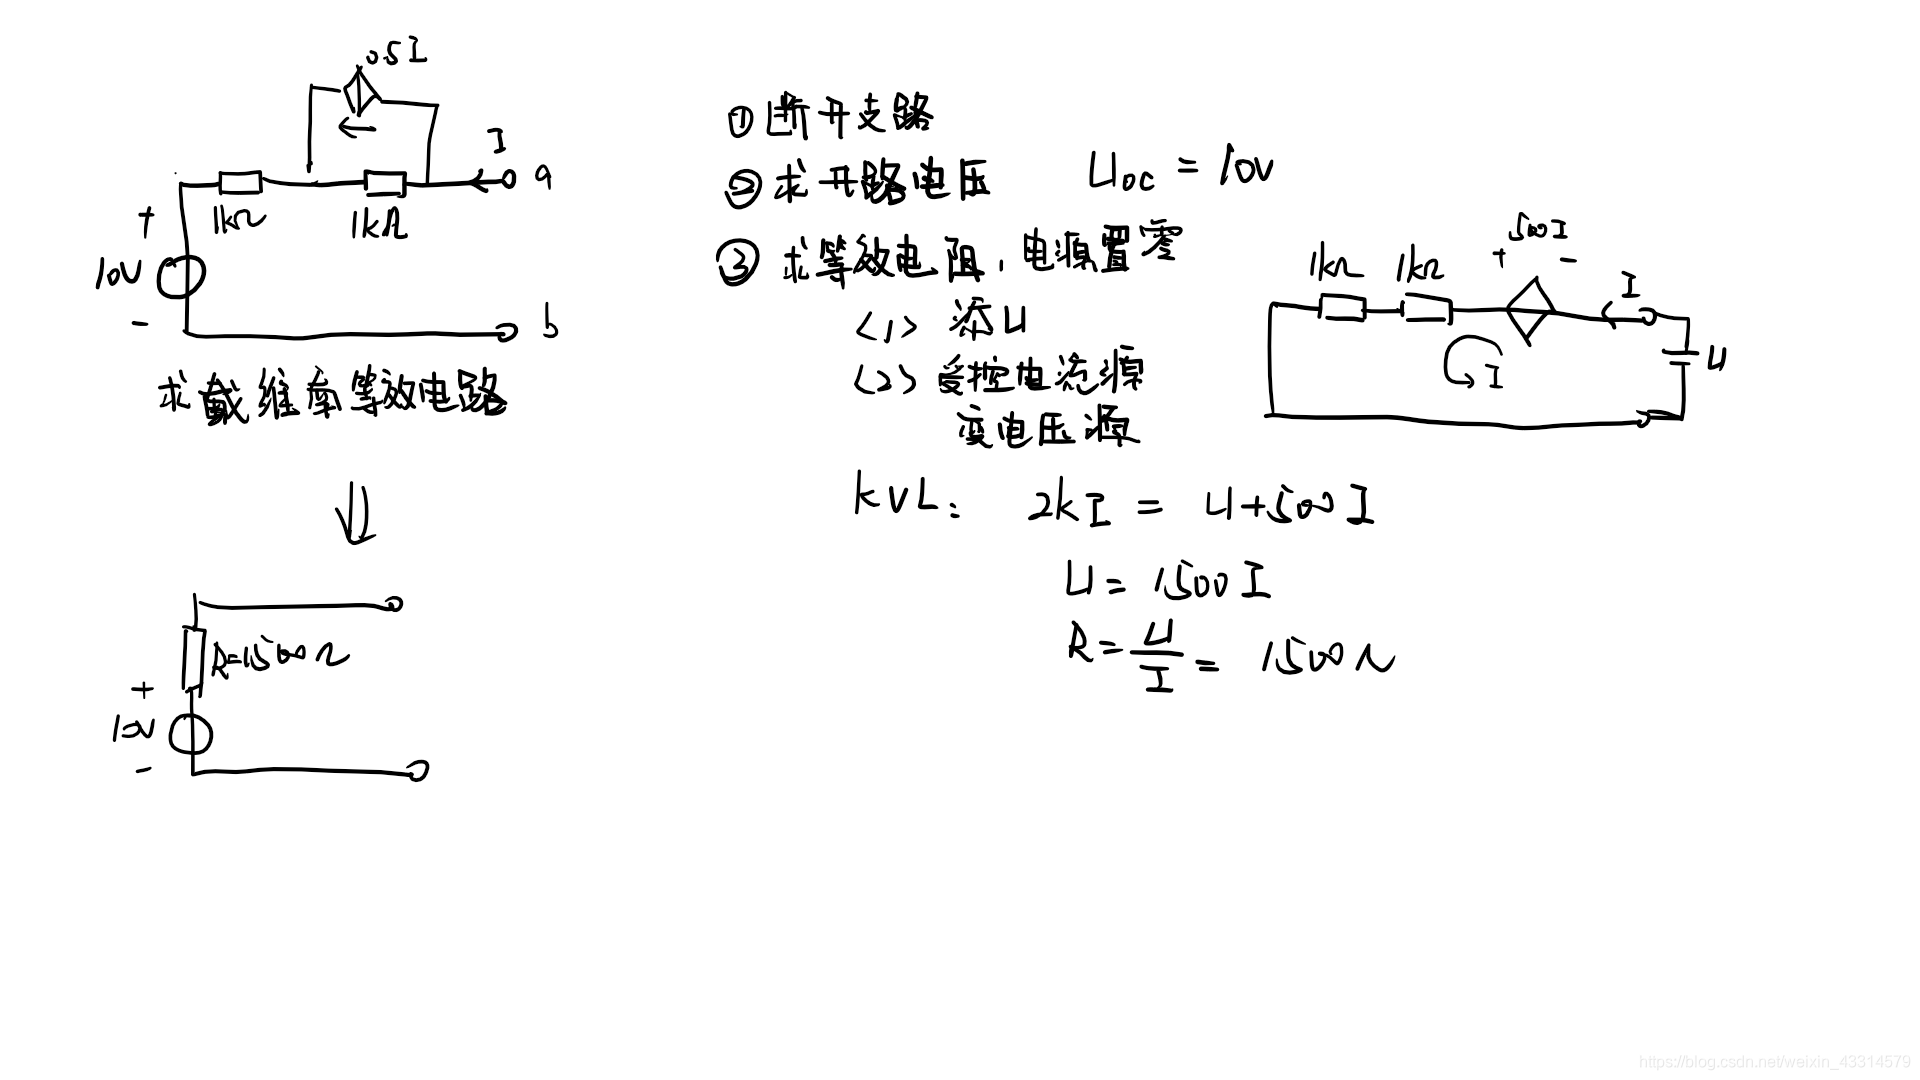 0.5I
I
a
1kΩ
1kΩ
+
10V
-
b
求戴维南等效电路
R=1500Ω
+
10V
-
①断开支路
②求开路电压 Uoc = 10V
③求等效电阻,电源置零
<1> 添U
<2> 受控电流源
变电压源
500I
+ -
1kΩ 1kΩ
I
U
I
KVL: 2kI = U+500I
U = 1500I
R = U/I = 1500Ω
https://blog.csdn.net/weixin_43314579